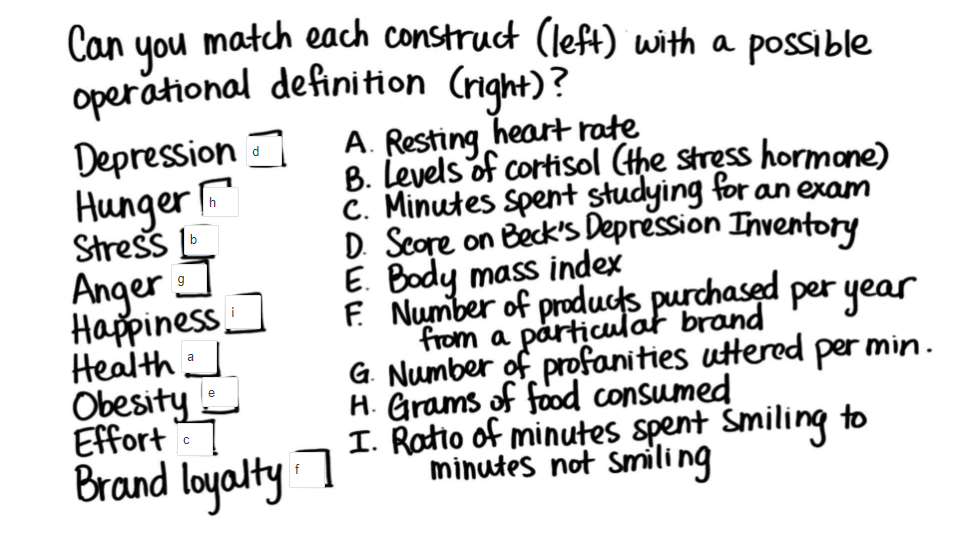 Can you match each construct (left) with a possible
operational definition (right)?
Depression d
Hunger h
Stress b
Anger g
Happiness i
Health a
Obesity e
Effort c
Brand loyalty f
A. Resting heart rate
B. Levels of cortisol (the stress hormone)
C. Minutes spent studying for an exam
D. Score on Beck's Depression Inventory
E. Body mass index
F. Number of products purchased per year
from a particular brand
G. Number of profanities uttered per min.
H. Grams of food consumed
I. Ratio of minutes spent smiling to
minutes not smiling